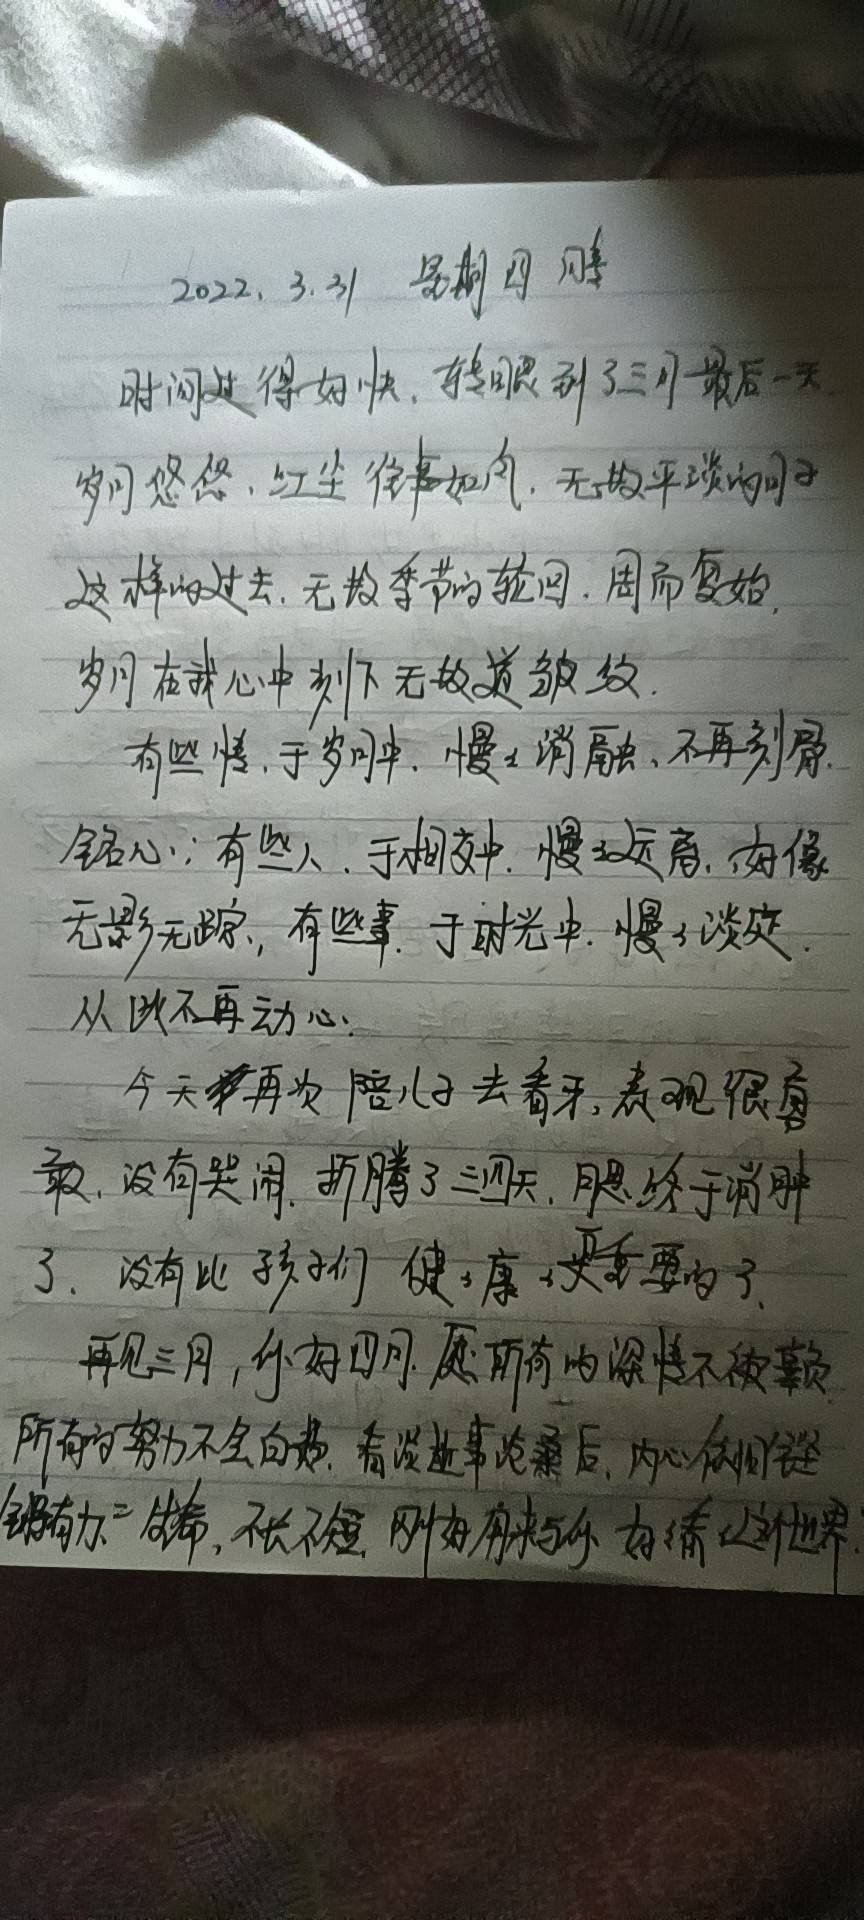 2022.3.31 星期四 晴
时间过得好快，转眼到了三月最后一天.
岁月悠悠，红尘往事如风，无数平淡的日子
这样的过去，无数季节的轮回，周而复始，
岁月在我心中刻下无数道皱纹.
有些情，于岁月中，慢々消融，不再刻骨
铭心；有些人，于相交中，慢々远离，好像
无影无踪，有些事，于时光中，慢々淡定，
从此不再动心；
今天再次陪儿子去看牙，表现很勇
敢，没有哭闹，折腾了三四天，眼终于消肿
了，没有比孩子们健々康々更重要的了，
再见三月，你好四月，愿所有的深情不被辜负
所有的努力不会白费，看淡世事沧桑后，内心依旧
有力二 生命，不长不短，刚好用来与你好々看看这个世界.